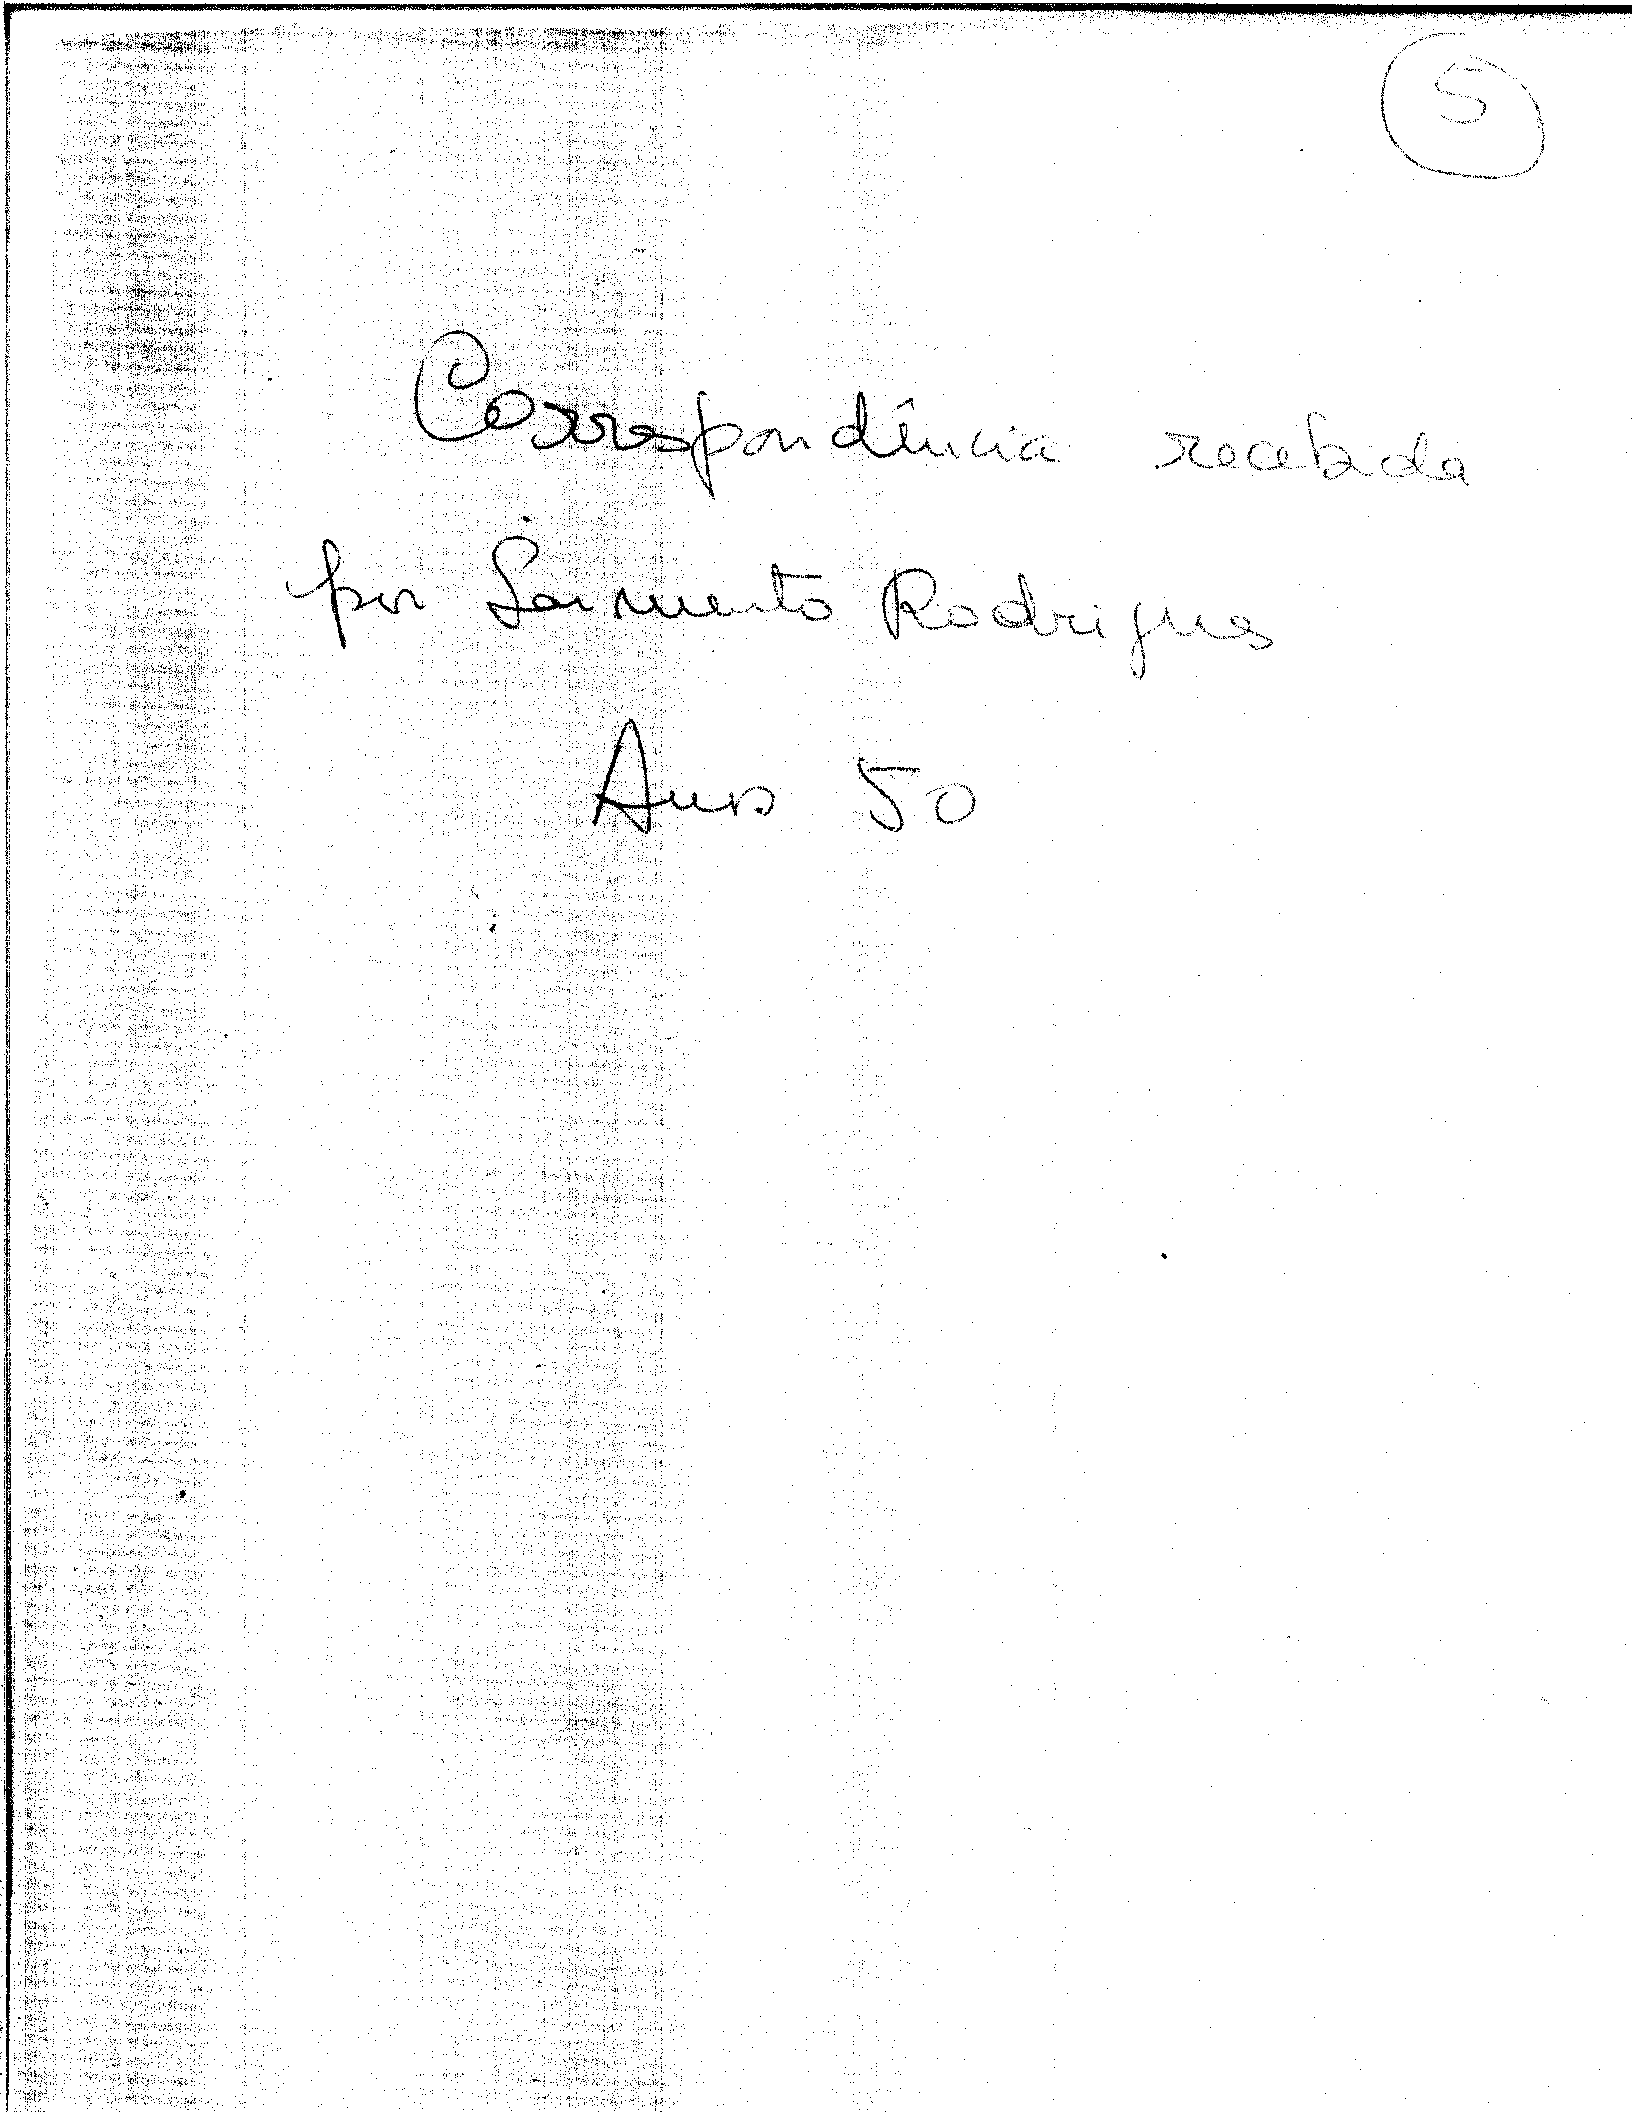 5
Correspondência recebida
por Sarmento Rodrigues
Anos 50